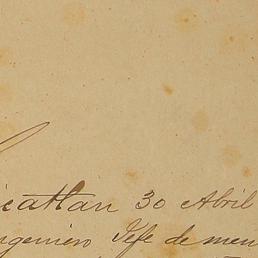 icatlan 30 Abril
ngeniero Jefe de men